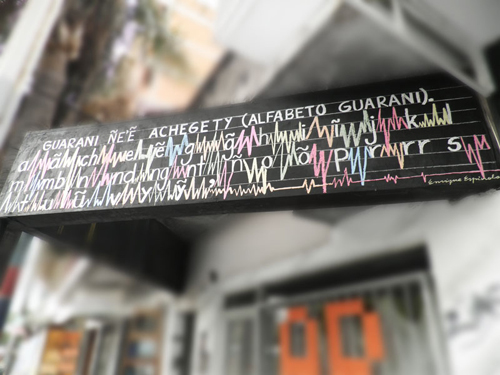 GUARANI ÑE'Ẽ ACHEGETY (ALFABETO GUARANI).
a ã ch e ẽ g g̃ h i ĩ j k
m mb n nd ng nt ñ o õ p r rr s
t u ũ v y ỹ '
Enrique